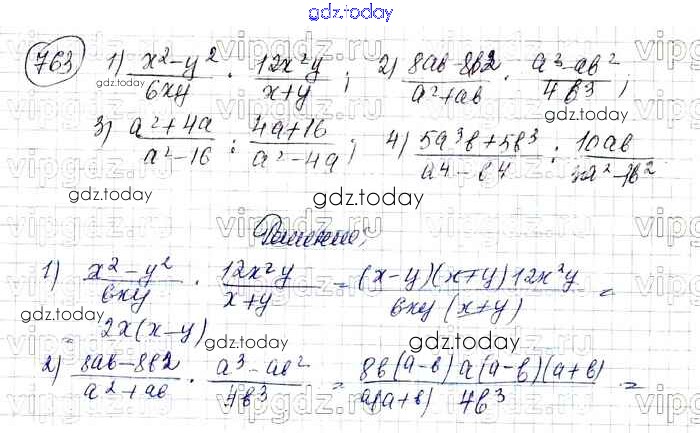 gdz.today
763 1) x²-y²/6xy · 12x²y/x+y ; 2) 8ab-8b2/a²+ab · a³-ab²/4b³ ;
gdz.today
3) a²+4a/a²-16 : 4a+16/a²-4a ; 4) 5a³b+5b³/a⁴-b⁴ : 10ab
gdz.today
gdz.today
1) x²-y²/6xy · 12x²y/x+y = (x-y)(x+y)12x²y/6xy(x+y) =
gdz.today
= 2x(x-y)
gdz.today
2) 8ab-8b2/a²+ab · a³-ab²/4b³ = 8b(a-b)a(a-b)(a+b)/a(a+b)4b³ =
gdz.today